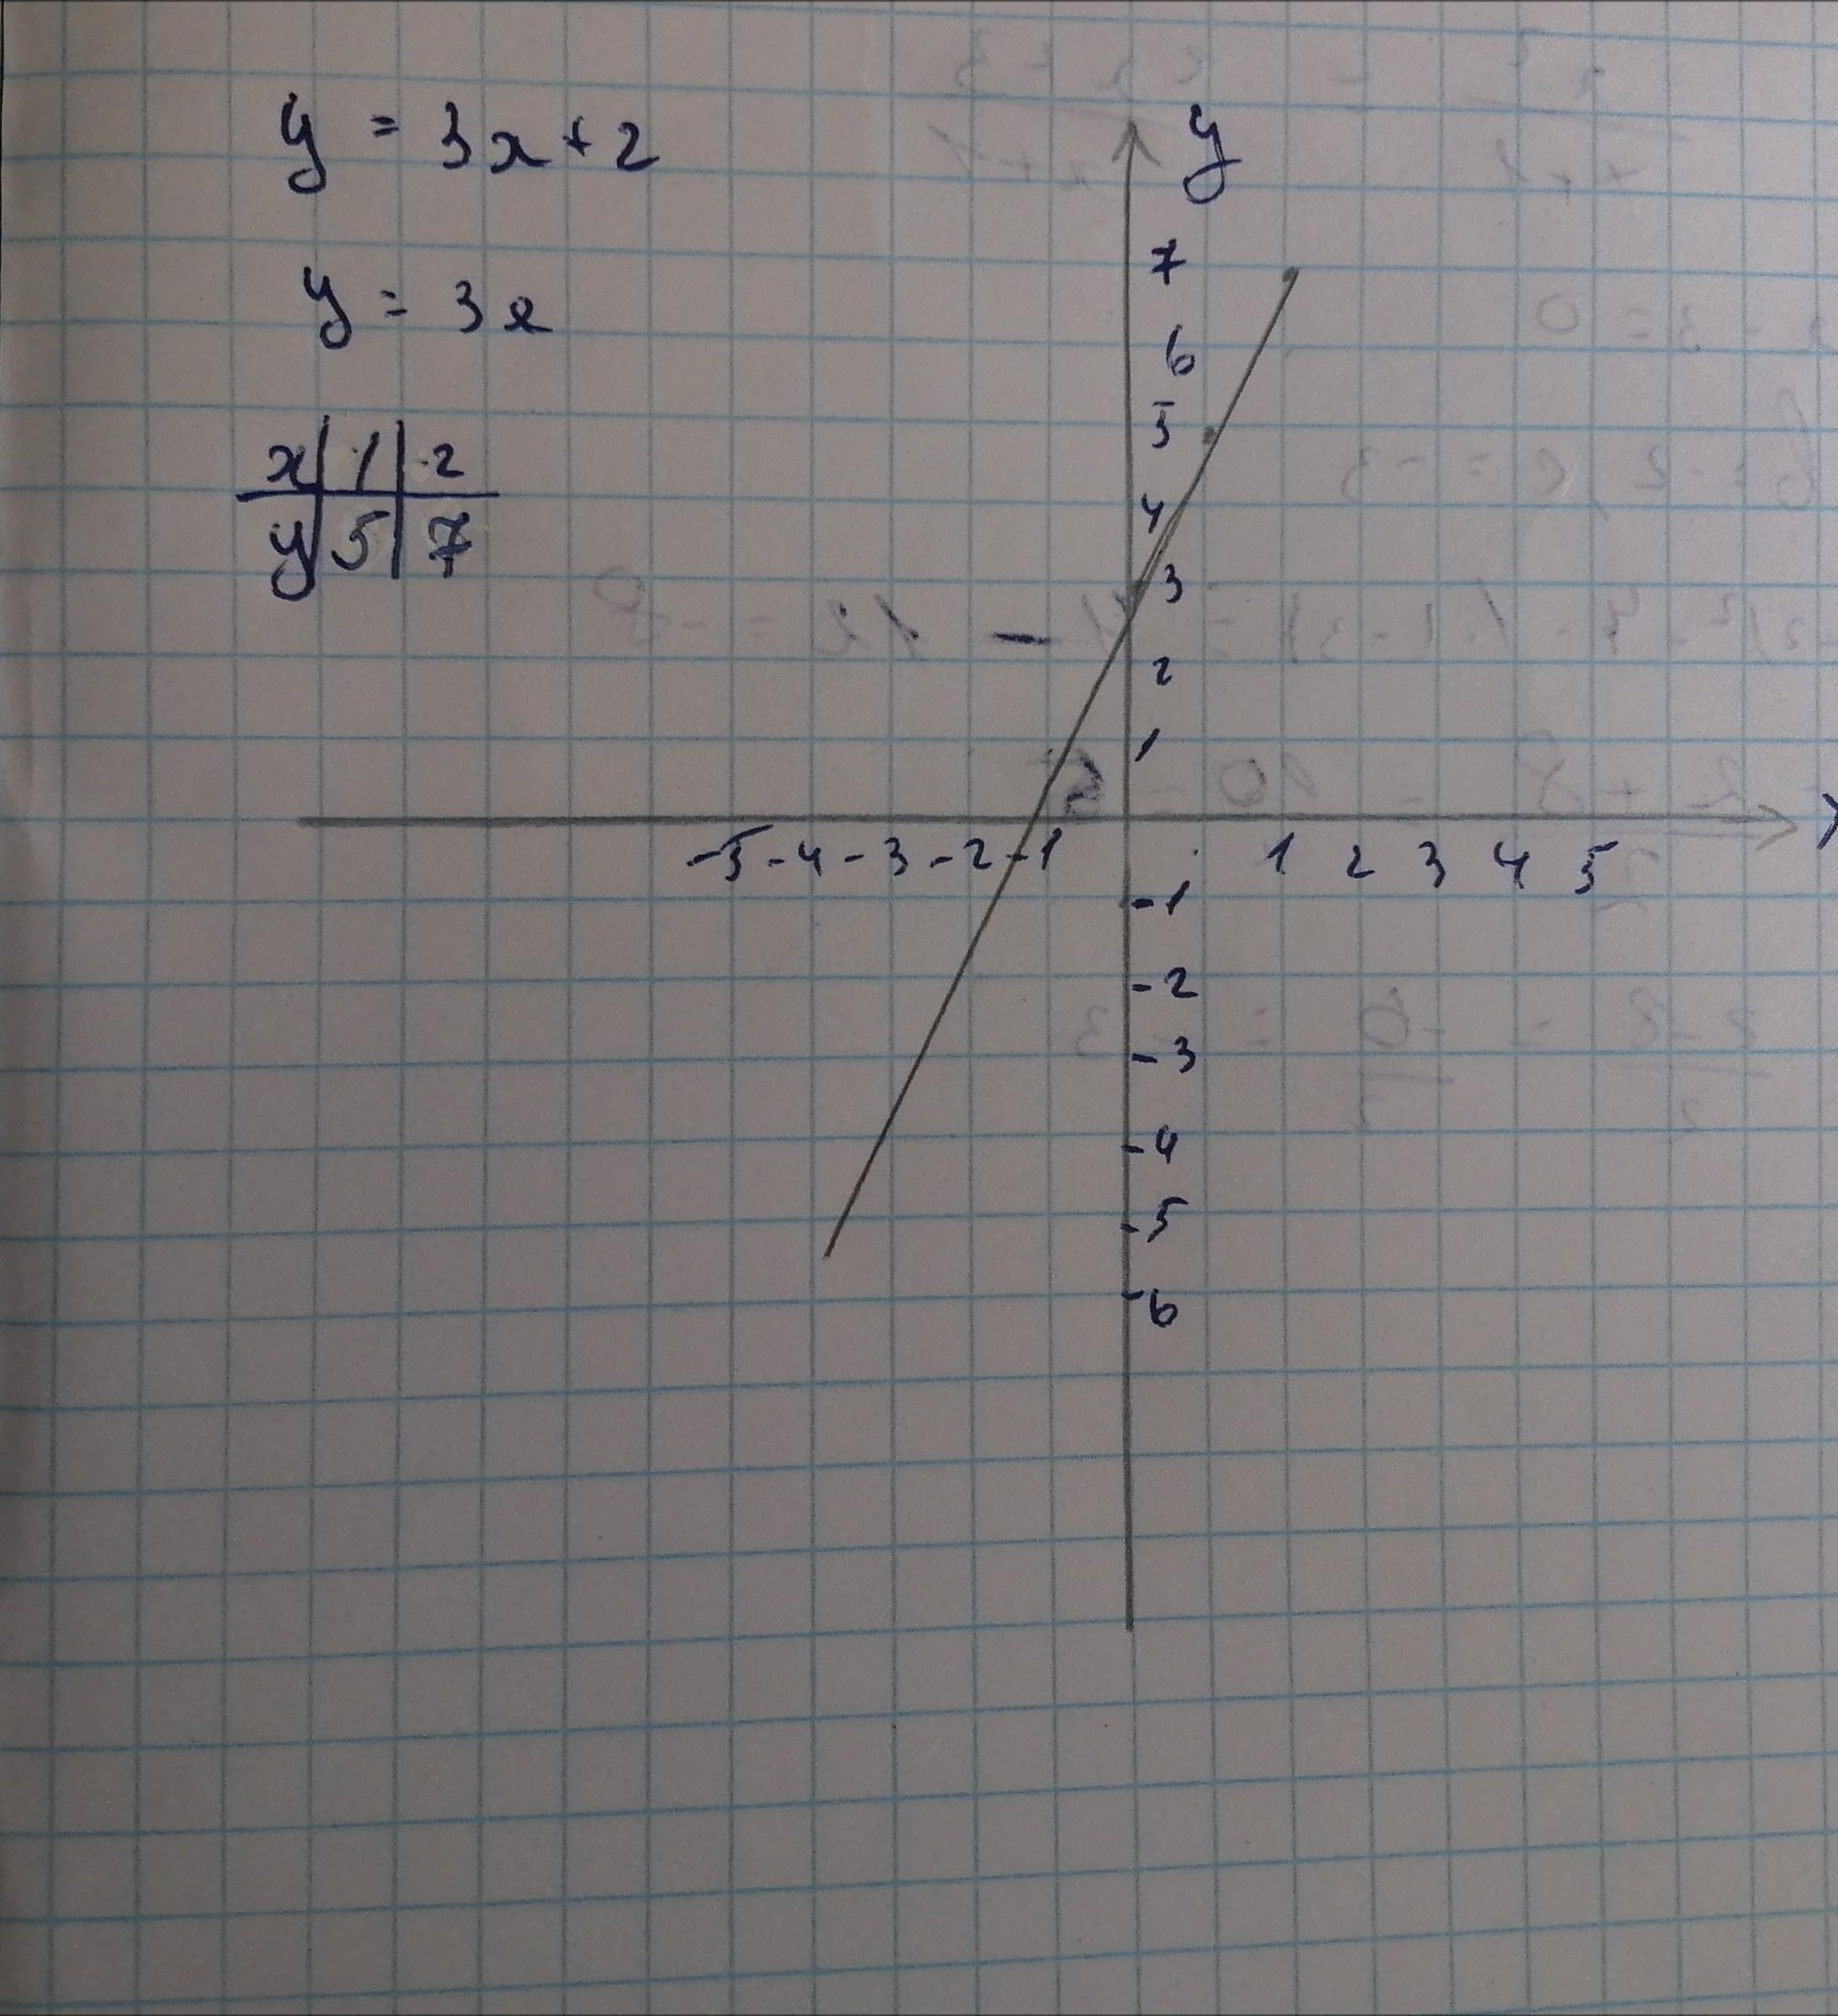 y = 3x + 2
y = 3x
x 1 2
y 5 7
y
7
6
5
4
3
2
1
-5 -4 -3 -2 -1 1 2 3 4 5
x
-1
-2
-3
-4
-5
-6